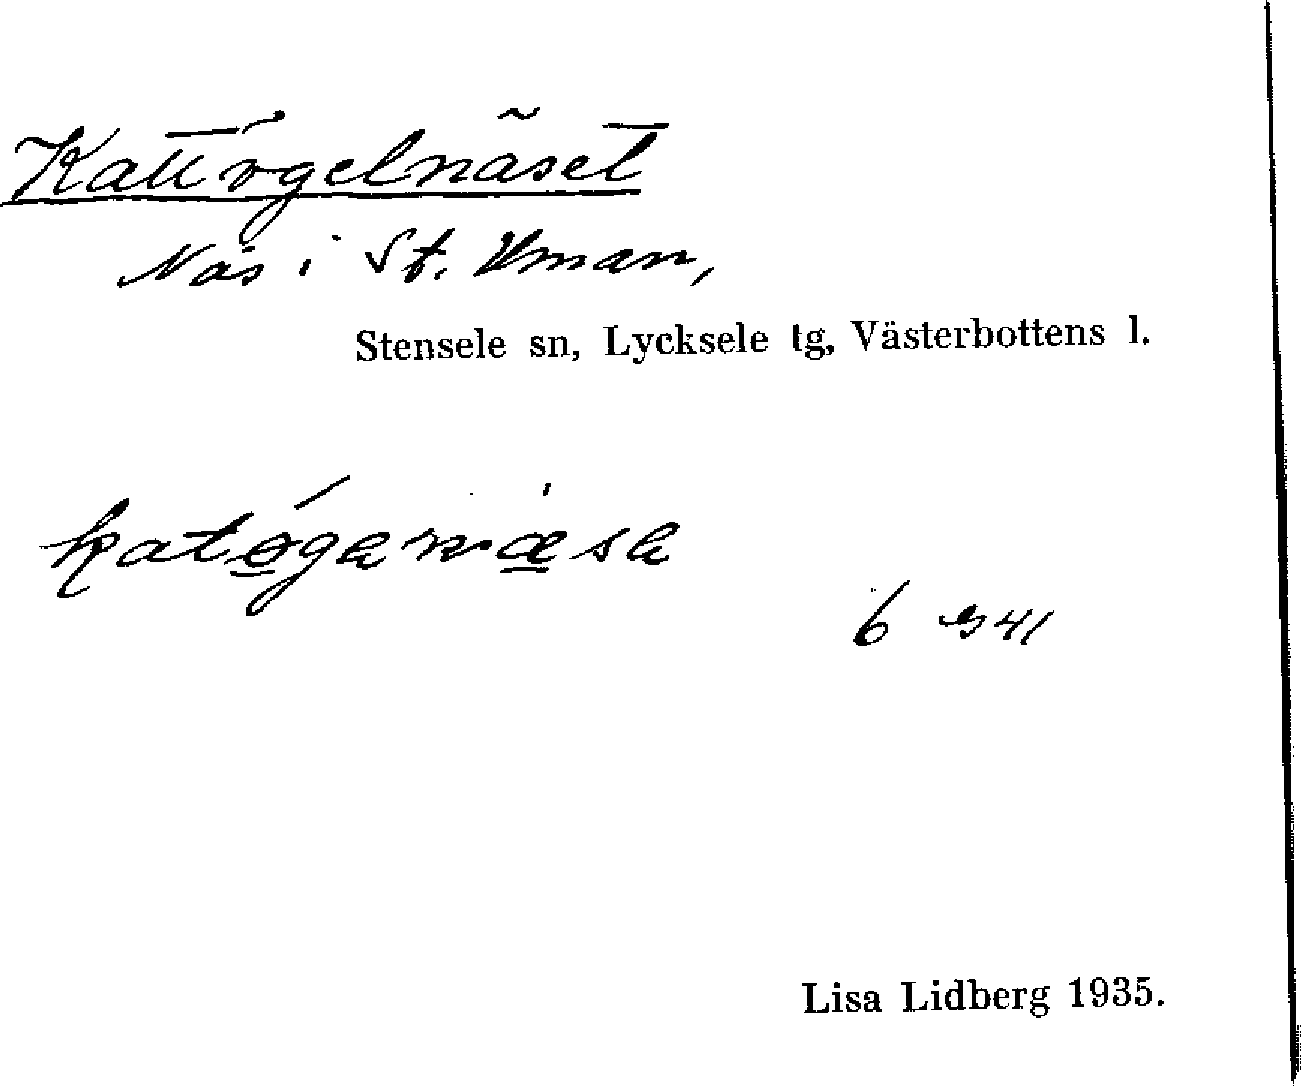 Kattögelnäset
Näs i St. Uman,
Stensele sn, Lycksele tg, Västerbottens l.
6 G 41
Lisa Lidberg 1935.